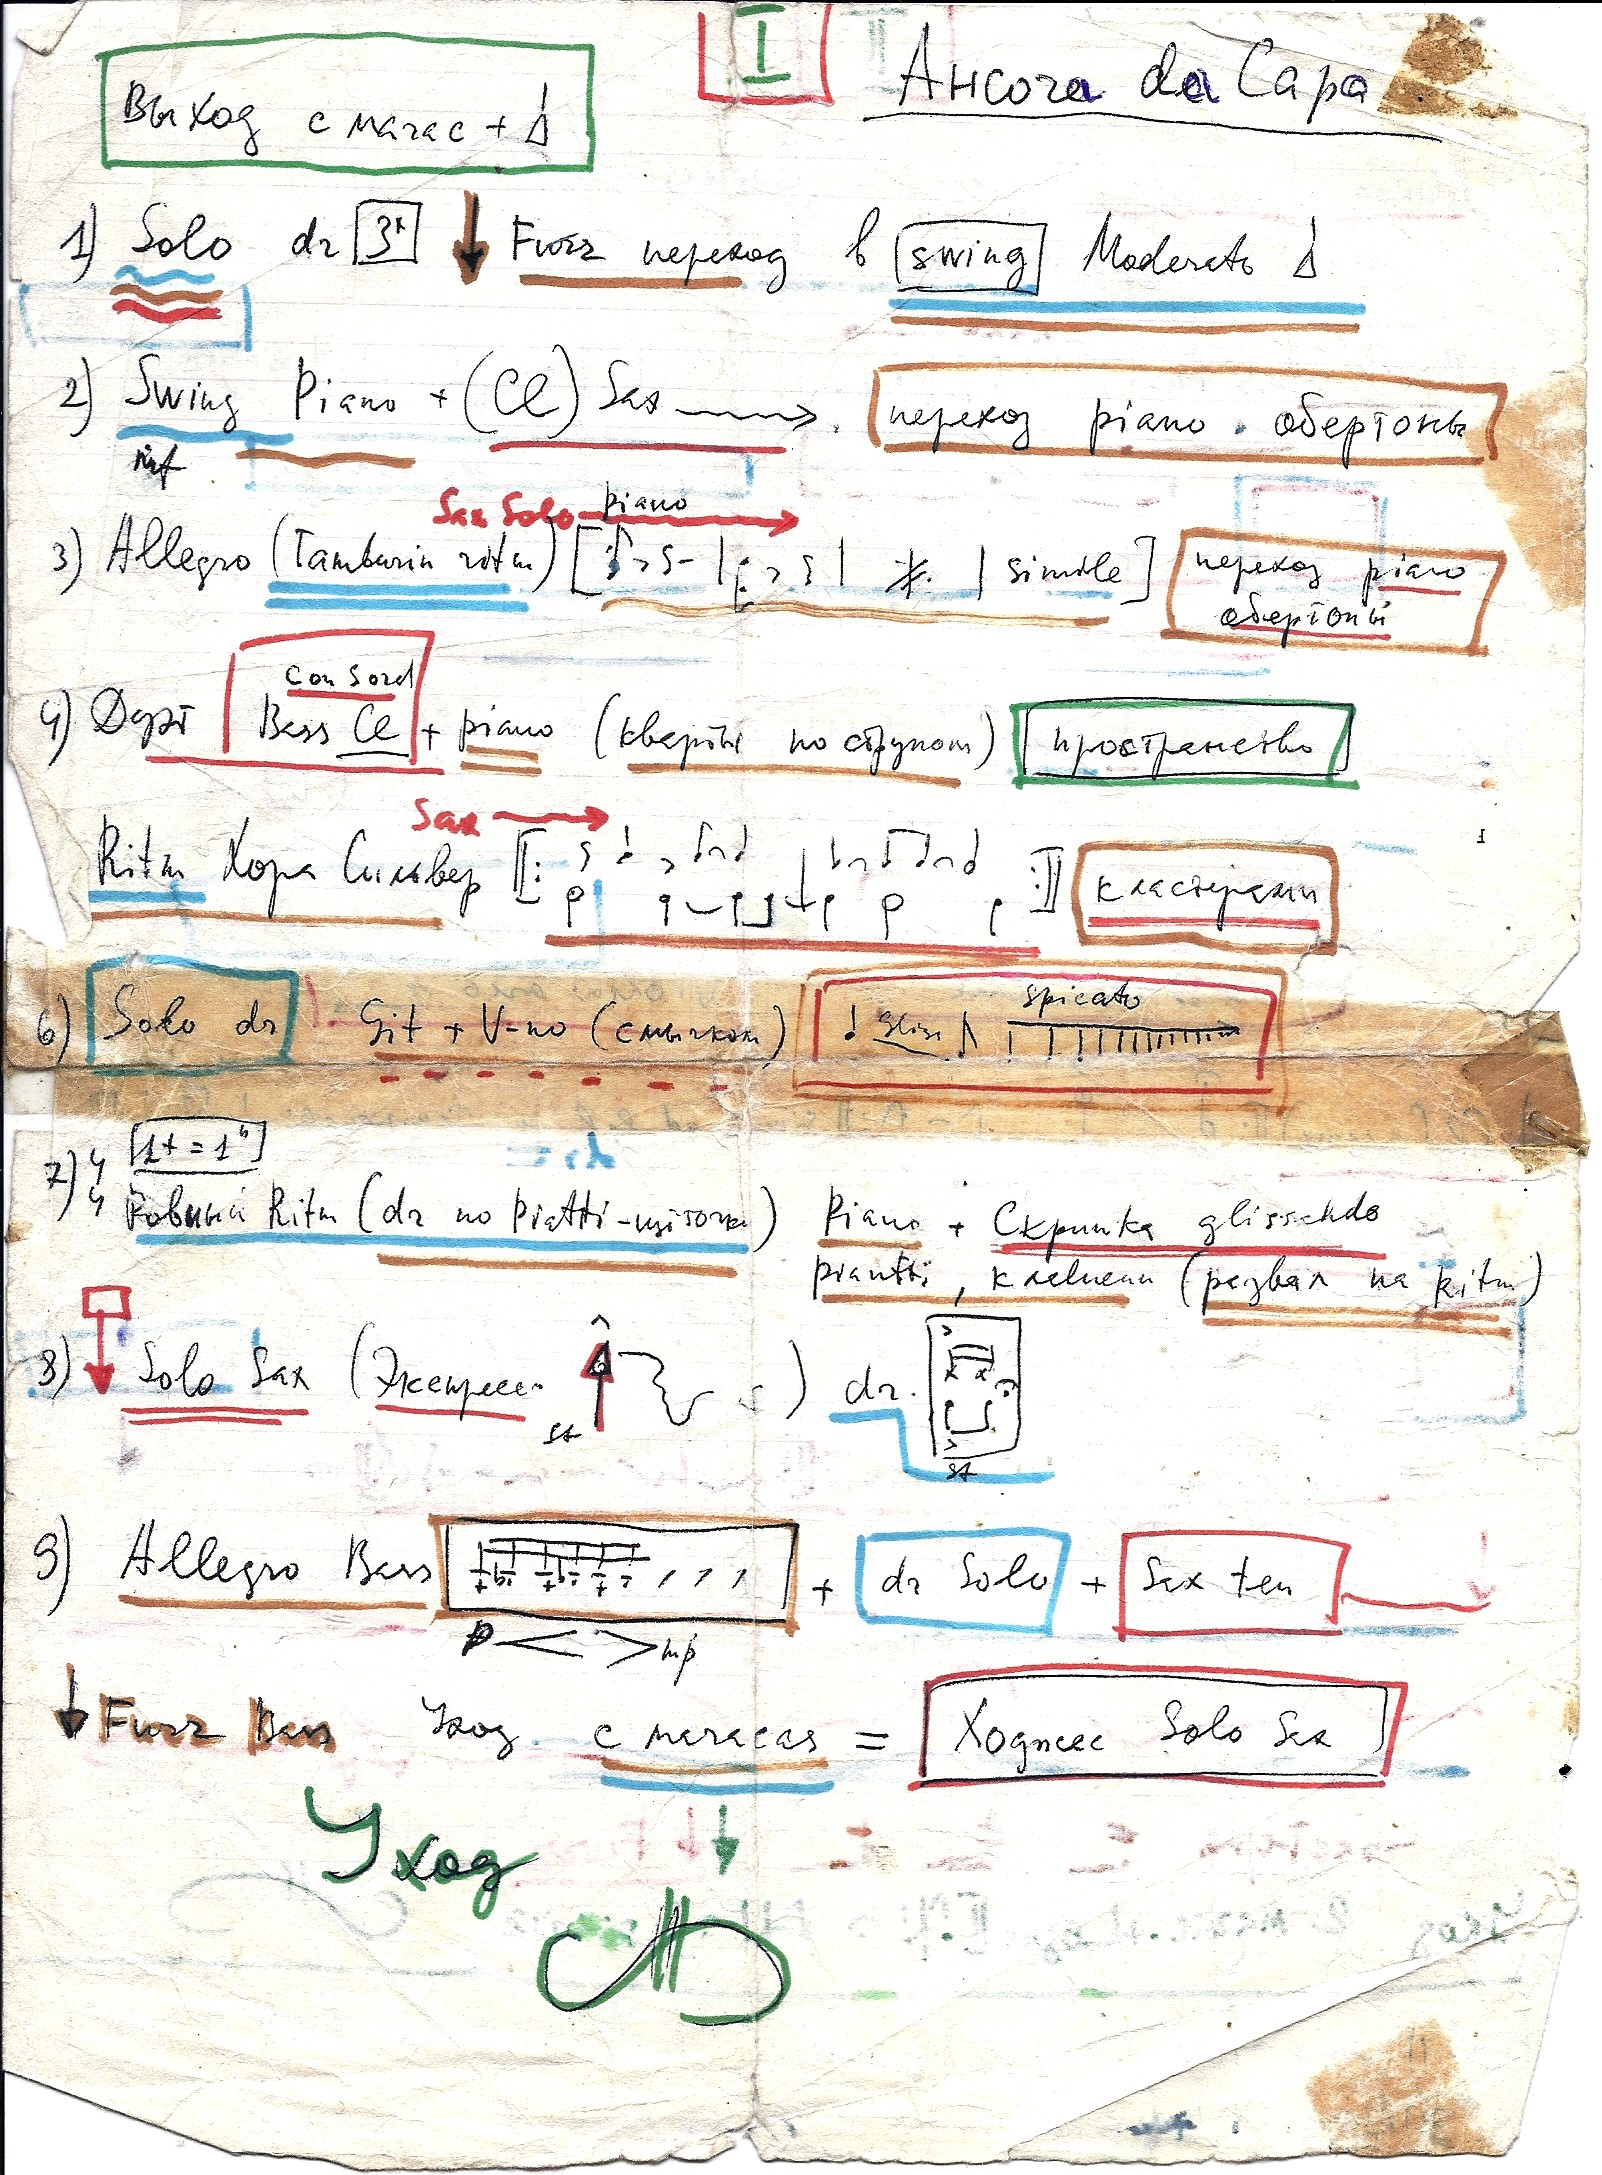 I
Ancora da Capo
Выход с марас +
1) Solo dr 3х Fuzz переход в swing Moderato
2) Swing Piano + (Cl) Sax переход piano. обертоны
mf
Sax Solo piano
3) Allegro (Tamburin ritm) [ simile ] переход piano
обертоны
con sord
4) Дуэт Bass Cl + piano (кварты по струнам) пространство
Sax
Ritm Хора Сильвер кластерами
6) Solo dr Git + V-no (смычком) gliss spicato
[1т = 1"]
7) 4/4 Ровный Ritm (dr по Piatti-щёточки) Piano + Скрипка glissando
piantti, клавиши (развал на ritm)
8) Solo Sax (Экспресс. ) dr.
sf
sf
9) Allegro Bass + dr Solo + Sax ten
p < > mp
Fuzz Bass Уход с maracas = Ходжес Solo Sax
Уход